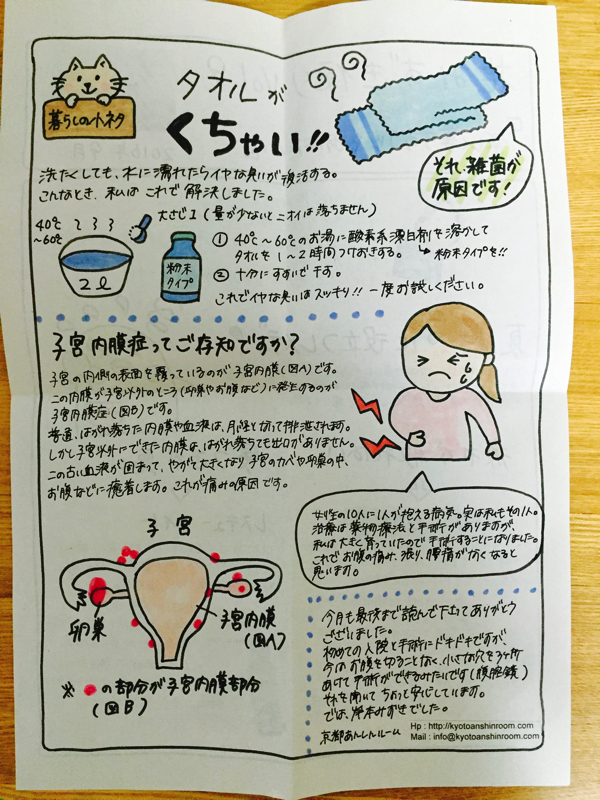 暮らしの小ネタ
タオルが
くちゃい!!
それ、雑菌が
原因です!
洗たくしても、水に濡れたらイヤな臭いが復活する。
こんなとき、私はこれで解決しました。
40℃
~60℃
大さじ1(量が少ないとニオイは落ちません)
2ℓ
粉末
タイプ
① 40℃~60℃のお湯に酸素系漂白剤を溶かして
タオルを1~2時間つけおきする。
粉末タイプを!!
② 十分にすすいで干す。
これでイヤな臭いはスッキリ!! 一度お試しください。
子宮内膜症ってご存知ですか?
子宮の内側の表面を覆っているのが子宮内膜(図A)です。
この内膜が子宮以外のところ(卵巣やお腹など)に発生するのが
子宮内膜症(図B)です。
普通、はがれ落ちた内膜や血液は、月経となって排泄されます。
しかし子宮以外にできた内膜は、はがれ落ちても出口がありません。
この古い血液が固まって、やがて大きくなり子宮のカベや卵巣の中、
お腹などに癒着します。これが痛みの原因です。
女性の10人に1人が抱える病気。実は私もその1人。
治療は薬物療法と手術がありますが、
私は大きく育っていたので手術することになりました。
これでお腹の痛み、張り、腰痛がなくなると
思います。
子宮
卵巣
子宮内膜
(図A)
※ の部分が子宮内膜部分
(図B)
今月も最後まで読んで下さってありがとう
ございました。
初めての入院と手術にドキドキですが、
今はお腹を切ることなく、小さな穴を3ヶ所
あけて手術ができるみたいです(腹腔鏡)
それを聞いてちょっと安心しています。
では、岸本みずきでした。
京都あんしんルーム
Hp : http://kyotoanshinroom.com
Mail : info@kyotoanshinroom.com